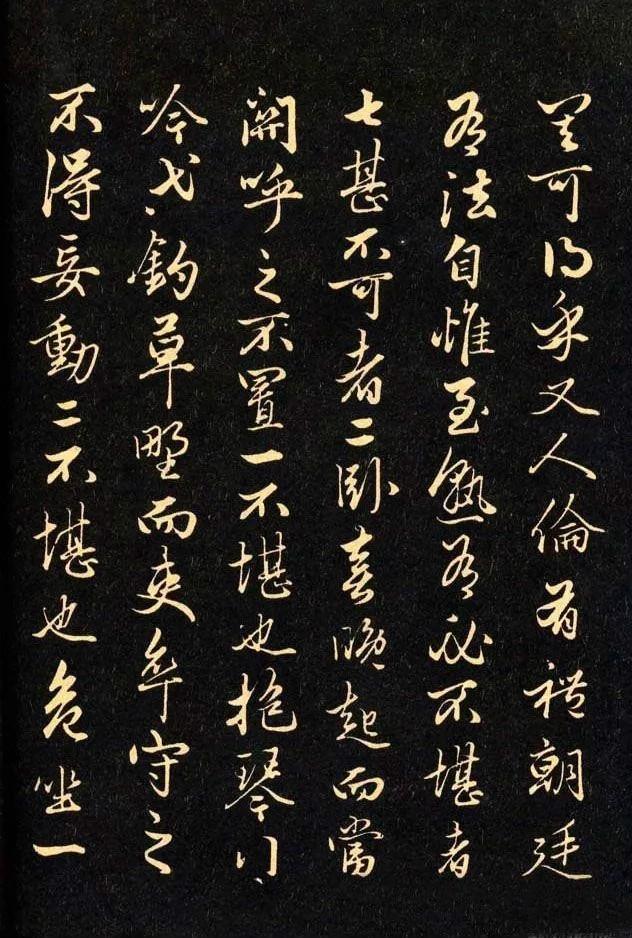 其可得乎又人倫有禮朝廷
有法自惟至熟有必不堪者
七甚不可者二臥喜晚起而當
關呼之不置一不堪也抱琴行
吟弋釣草野而吏卒守之
不得妄動二不堪也危坐一